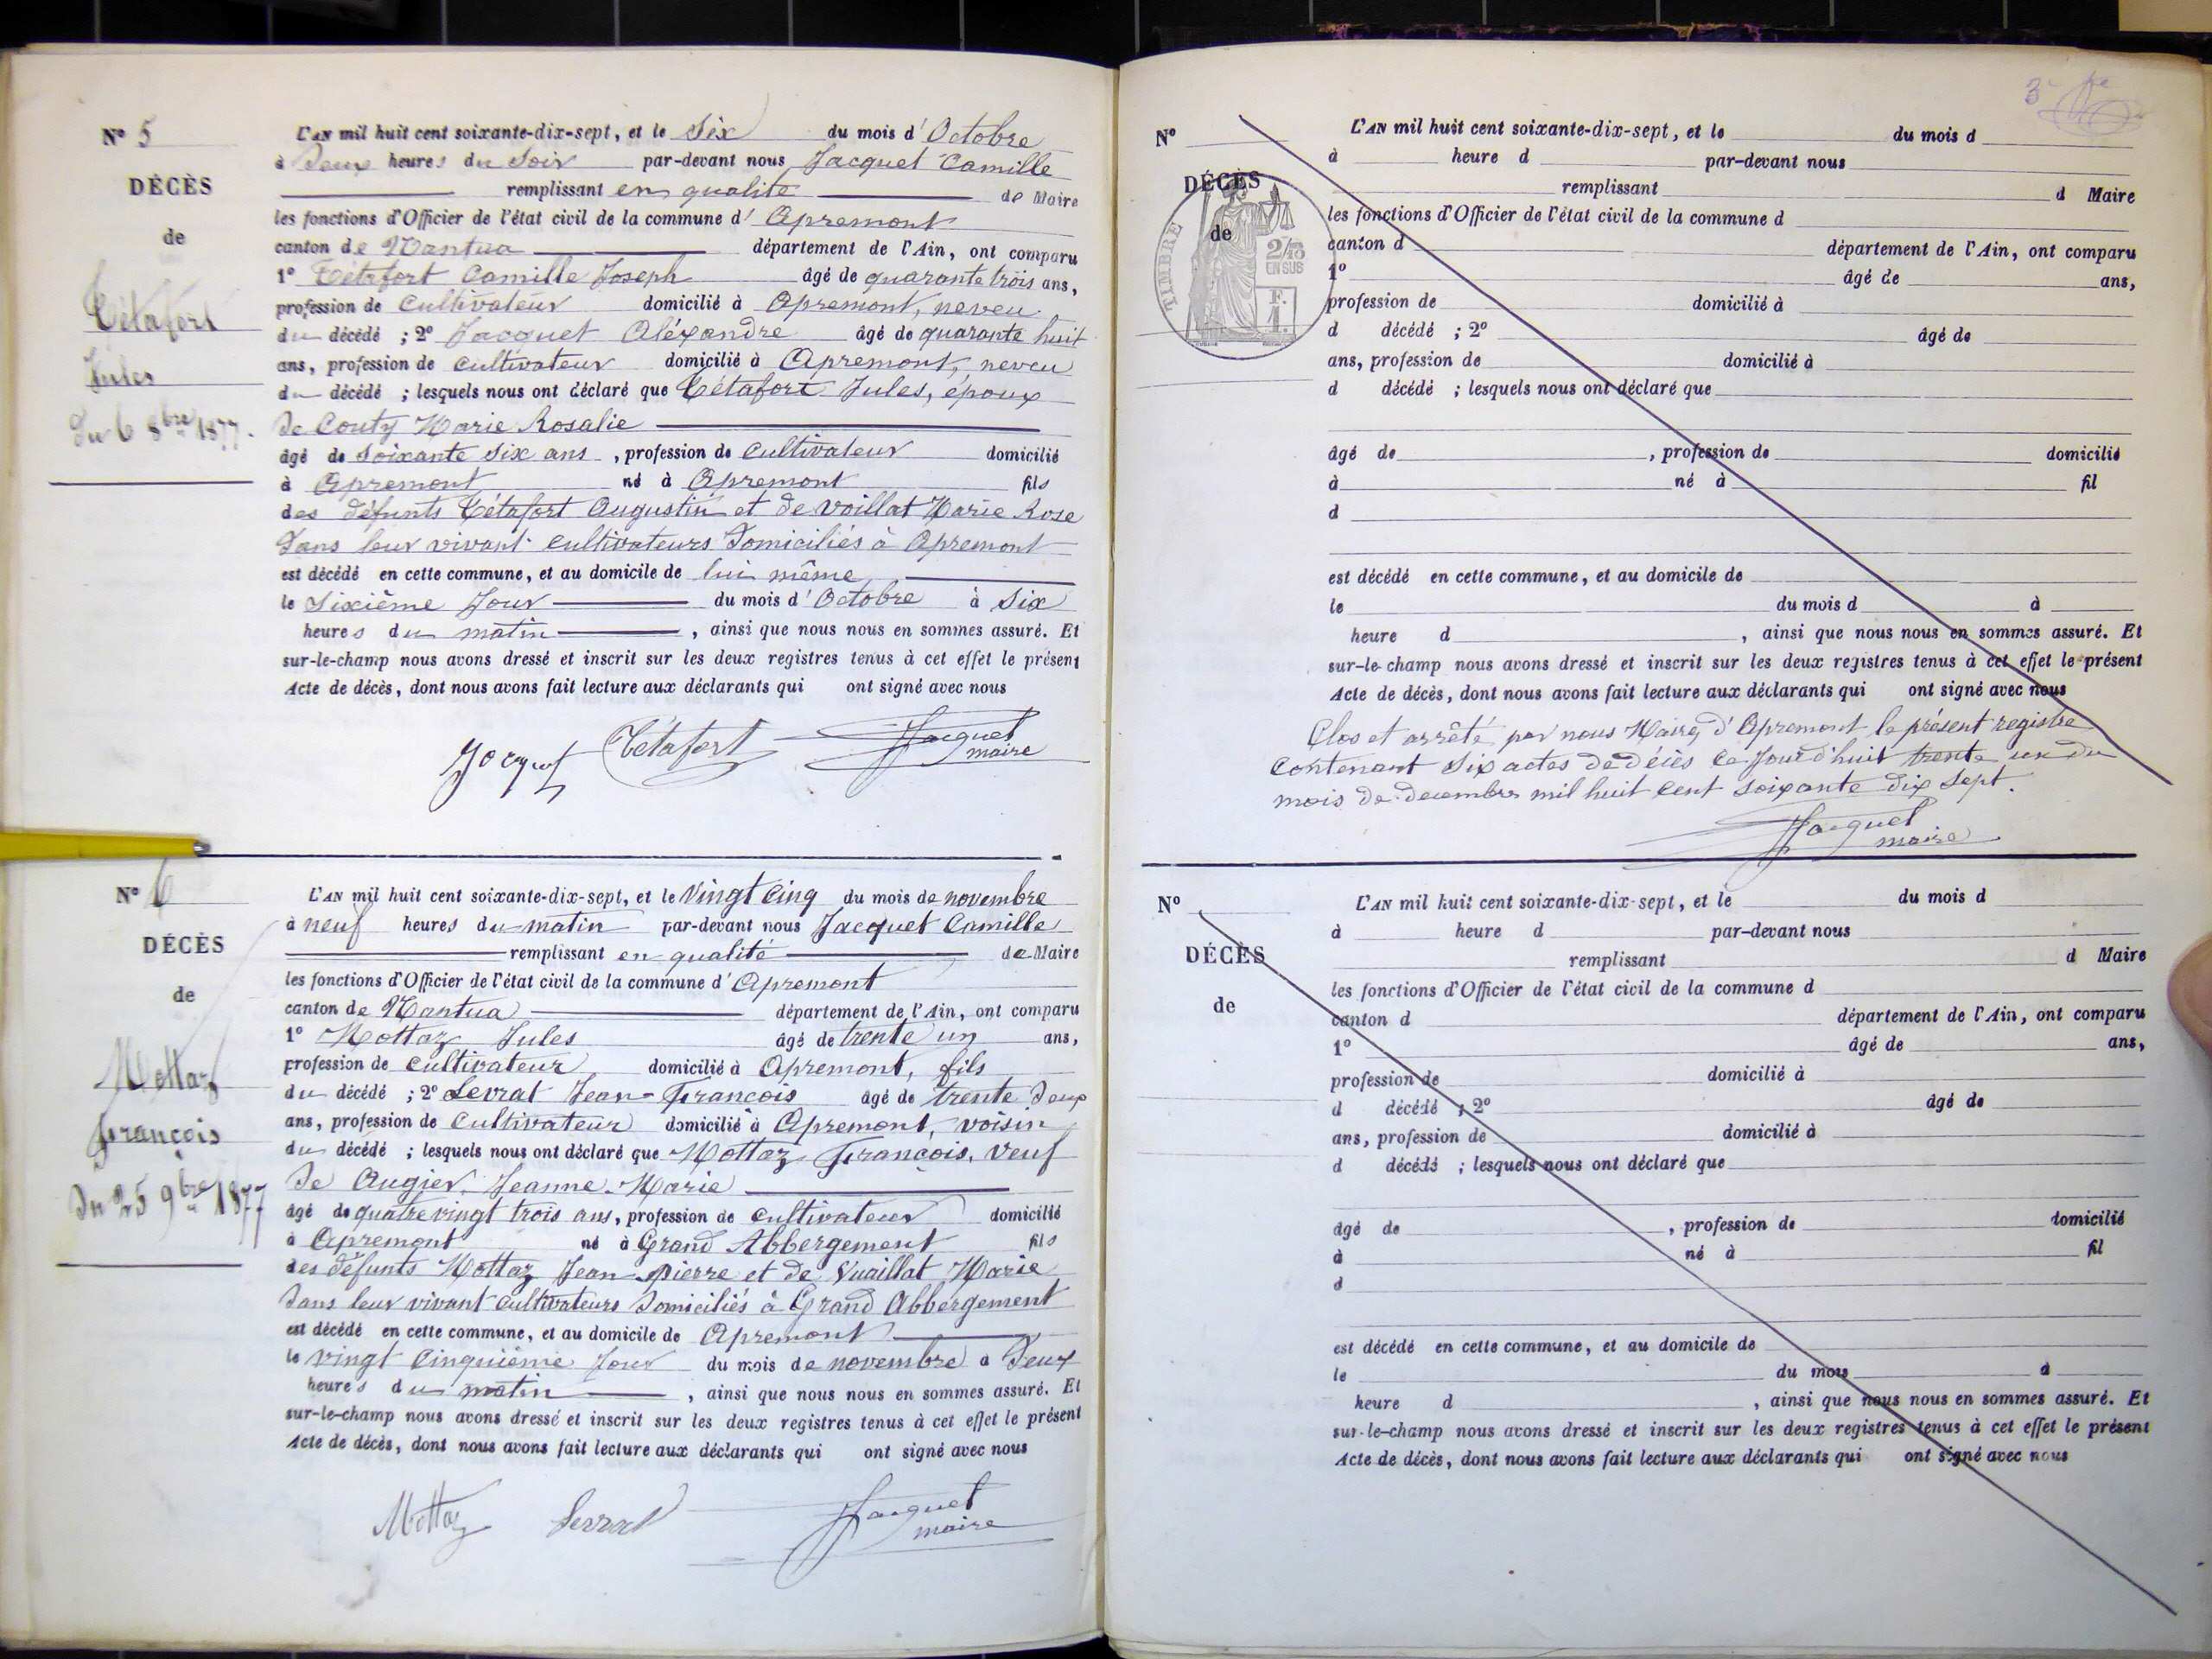 N° 5
DÉCÈS
de
Tétafort
Jules
Du 6 8bre 1877.
L'AN mil huit cent soixante-dix-sept, et le Six du mois d'Octobre
à Deux heures du Soir par-devant nous Jacquet Camille
remplissant en qualité de Maire
les fonctions d'Officier de l'état civil de la commune d'Apremont
canton de Nantua département de l'Ain, ont comparu
1° Tétafort Camille Joseph âgé de quarante trois ans,
profession de Cultivateur domicilié à Apremont, neveu
du décédé ; 2° Jacquet Aléxandre âgé de quarante huit
ans, profession de cultivateur domicilié à Apremont, neveu
du décédé ; lesquels nous ont déclaré que Tétafort Jules, époux
de Couty Marie Rosalie
âgé de Soixante Six ans, profession de Cultivateur domicilié
à Apremont né à Apremont fils
des défunts Tétafort Augustin et de Voillat Marie Rose
Dans leur vivant cultivateurs Domiciliés à Apremont
est décédé en cette commune, et au domicile de lui même
le Sixième Jour du mois d'Octobre à Six
heures du matin, ainsi que nous nous en sommes assuré. Et
sur-le-champ nous avons dressé et inscrit sur les deux registres tenus à cet effet le présent
Acte de décès, dont nous avons fait lecture aux déclarants qui ont signé avec nous
Jacquet Tétafort Jacquet
maire
N° 6
DÉCÈS
de
Mottaz
François
Du 25 9bre 1877
L'AN mil huit cent soixante-dix-sept, et le Vingt Cinq du mois de novembre
à neuf heures du matin par-devant nous Jacquet Camille
remplissant en qualité de Maire
les fonctions d'Officier de l'état civil de la commune d'Apremont
canton de Nantua département de l'Ain, ont comparu
1° Mottaz Jules âgé de trente un ans,
profession de Cultivateur domicilié à Apremont, fils
du décédé ; 2° Levrat Jean-François âgé de trente Deux
ans, profession de Cultivateur domicilié à Apremont, voisin
du décédé ; lesquels nous ont déclaré que Mottaz François, Veuf
de Augier Jeanne Marie
âgé de quatre vingt trois ans, profession de Cultivateur domicilié
à Apremont né à Grand Abbergement fils
des défunts Mottaz Jean-Pierre et de Vuaillat Marie
Dans leur vivant Cultivateurs Domiciliés à Grand Abbergement
est décédé en cette commune, et au domicile de Apremont
le vingt Cinquième Jour du mois de novembre à Deux
heures du matin, ainsi que nous nous en sommes assuré. Et
sur-le-champ nous avons dressé et inscrit sur les deux registres tenus à cet effet le présent
Acte de décès, dont nous avons fait lecture aux déclarants qui ont signé avec nous
Mottaz Levrat Jacquet
maire
3
N°
DÉCÈS
de
TIMBRE
2/10
EN SUS
F.
1.
L'AN mil huit cent soixante-dix-sept, et le du mois d
à heure d par-devant nous
remplissant d Maire
les fonctions d'Officier de l'état civil de la commune d
canton d département de l'Ain, ont comparu
1° âgé de ans,
profession de domicilié à
d décédé ; 2° âgé de
ans, profession de domicilié à
d décédé ; lesquels nous ont déclaré que
âgé de , profession de domicilié
à né à fil
d
est décédé en cette commune, et au domicile de
le du mois d à
heure d , ainsi que nous nous en sommes assuré. Et
sur-le-champ nous avons dressé et inscrit sur les deux registres tenus à cet effet le présent
Acte de décès, dont nous avons fait lecture aux déclarants qui ont signé avec nous
Clos et arrêté par nous Maire d'Apremont le présent registre
Contenant Six actes de décès ce Jour d'huit trente un du
mois de decembre mil huit Cent soixante dix sept.
Jacquet
maire
N°
DÉCÈS
de
L'AN mil huit cent soixante-dix-sept, et le du mois d
à heure d par-devant nous
remplissant d Maire
les fonctions d'Officier de l'état civil de la commune d
canton d département de l'Ain, ont comparu
1° âgé de ans,
profession de domicilié à
d décédé ; 2° âgé de
ans, profession de domicilié à
d décédé ; lesquels nous ont déclaré que
âgé de , profession de domicilié
à né à fil
d
est décédé en cette commune, et au domicile de
le du mois à
heure d , ainsi que nous nous en sommes assuré. Et
sur-le-champ nous avons dressé et inscrit sur les deux registres tenus à cet effet le présent
Acte de décès, dont nous avons fait lecture aux déclarants qui ont signé avec nous